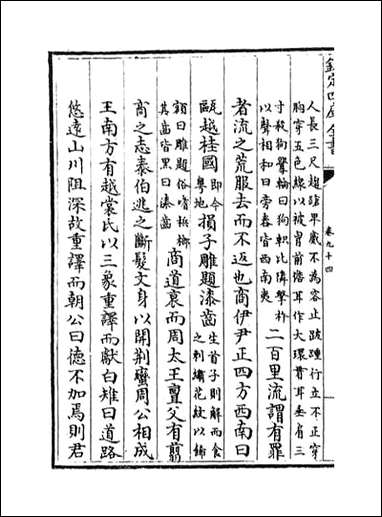 欽定四庫全書
卷九十四
人長三尺 踵早歲不為容止跂踵行立不正穿
胸穿五色線以被胃前儋耳作大環貫耳垂肩三
寸殺狗聲 曰狗軹比偉擊杵
以聲相和曰旁舂皆西南夷
二百里流謂有罪
者流之荒服去而不返也商伊尹正四方西南曰
甌越桂國
即今
粵地
損子雕題漆齒
生首子則解而食
之刺繡花紋以飾
額曰雕題俗嗜檳榔
其齒皆黑曰漆齒
商道衰而周太王亶父有翦
商之志泰伯逃之斷髮文身以開荊蠻周公相成
王南方有越裳氏以三象重譯而獻白雉曰道路
悠遠山川阻深故重譯而朝公曰德不加焉則君